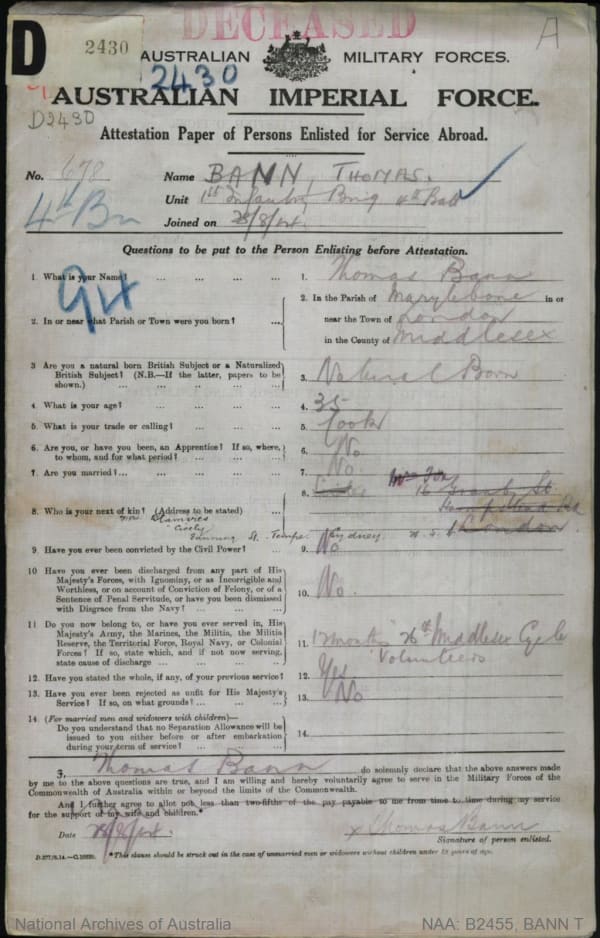 DECEASED
D
2430
A
AUSTRALIAN MILITARY FORCES.
2430
AUSTRALIAN IMPERIAL FORCE.
D2430
Attestation Paper of Persons Enlisted for Service Abroad.
No. 678 Name BANN, THOMAS.
Unit 1st Infantry Brig 4th Batt
4th Bn
Joined on /8/14.
Questions to be put to the Person Enlisting before Attestation.
1. What is your Name? ... ... ... ... 1. Thomas Bann
2. In or near what Parish or Town were you born? ... 2. In the Parish of Marylebone in or
near the Town of London
in the County of Middlesex
3 Are you a natural born British Subject or a Naturalized
British Subject? (N.B.—If the latter, papers to be
shown.) ... ... ... ... ... 3. Natural Born
4. What is your age? ... ... ... ... 4. 35
5. What is your trade or calling? ... ... ... 5. Cook
6. Are you, or have you been, an Apprentice? If so, where,
to whom, and for what period? ... ... ... 6. No
7. Are you married?... ... ... ... ... 7. No
8. Who is your next of kin? (Address to be stated) ... 8. 16 Granby St
Hampstead Rd
London
St. Tempe Sydney N. S.
9. Have you ever been convicted by the Civil Power? ... 9. No
10 Have you ever been discharged from any part of His
Majesty's Forces, with Ignominy, or as Incorrigible and
Worthless, or on account of Conviction of Felony, or of a
Sentence of Penal Servitude, or have you been dismissed
with Disgrace from the Navy? ... ... ... 10. No.
11 Do you now belong to, or have you ever served in, His
Majesty's Army, the Marines, the Militia, the Militia
Reserve, the Territorial Force, Royal Navy, or Colonial
Forces? If so, state which, and if not now serving,
state cause of discharge ... ... ... ... 11. months 26th Middlesex Cycle
Volunteers
12. Have you stated the whole, if any, of your previous service? 12. Yes
13. Have you ever been rejected as unfit for His Majesty's
Service? If so, on what grounds? ... ... ... 13. No
14 (For married men and widowers with children)—
Do you understand that no Separation Allowance will be
issued to you either before or after embarkation
during your term of service? ... ... ... 14.
I, Thomas Bann do solemnly declare that the above answers made
by me to the above questions are true, and I am willing and hereby voluntarily agree to serve in the Military Forces of the
Commonwealth of Australia within or beyond the limits of the Commonwealth.
And I further agree to allot not less than two-fifths of the pay payable to me from time to time during my service
for the support of my wife and children.*
Date /8/14. x Thomas Bann
Signature of person enlisted.
*This clause should be struck out in the case of unmarried men or widowers without children under 18 years of age.
National Archives of Australia NAA: B2455, BANN T